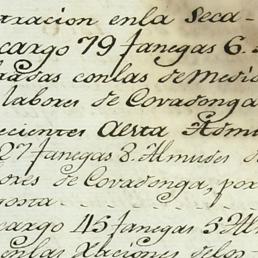 tracion enla Seca-
cargo 79 fanegas 6.
das conlas de Medi
labores de Covadonga
ecientes aesta Admi
27 fanegas 8. Almudes de
ores de Covadonga, por
gosta
cargo 45 fanegas 5 Al
enlas